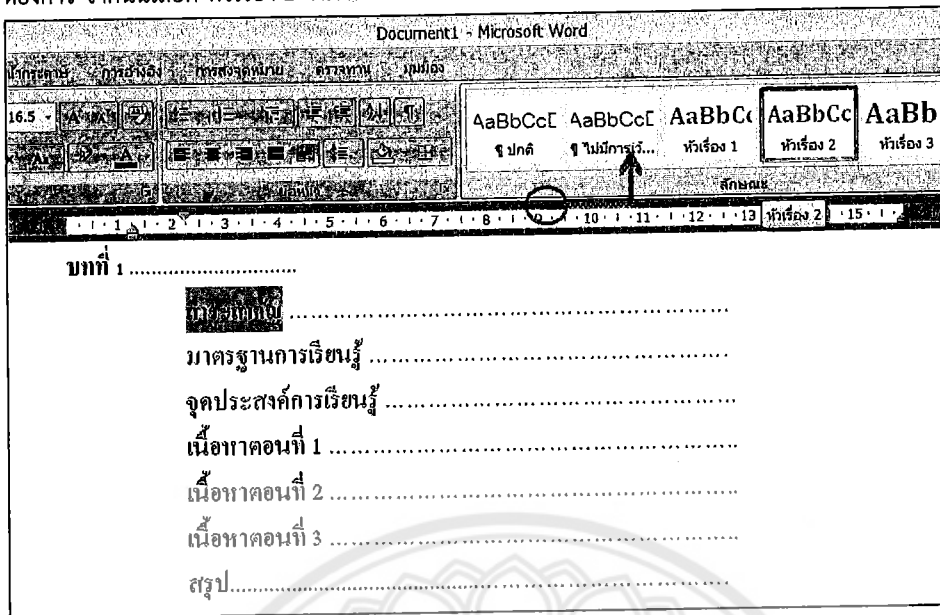 Document1 - Microsoft Word
การอ้างอิง การส่งจดหมาย ตรวจทาน มุมมอง
16.5
AaBbCcD AaBbCcD AaBbCc AaBbCc AaBb
¶ ปกติ ¶ ไม่มีการเว้... หัวเรื่อง 1 หัวเรื่อง 2 หัวเรื่อง 3
ลักษณะ
1 2 3 4 5 6 7 8 9 10 11 12 13 หัวเรื่อง 2 15
บทที่ 1 ..............................
สาระสำคัญ ..............................
มาตรฐานการเรียนรู้ ..............................
จุดประสงค์การเรียนรู้ ..............................
เนื้อหาตอนที่ 1 ..............................
เนื้อหาตอนที่ 2 ..............................
เนื้อหาตอนที่ 3 ..............................
สรุป..............................